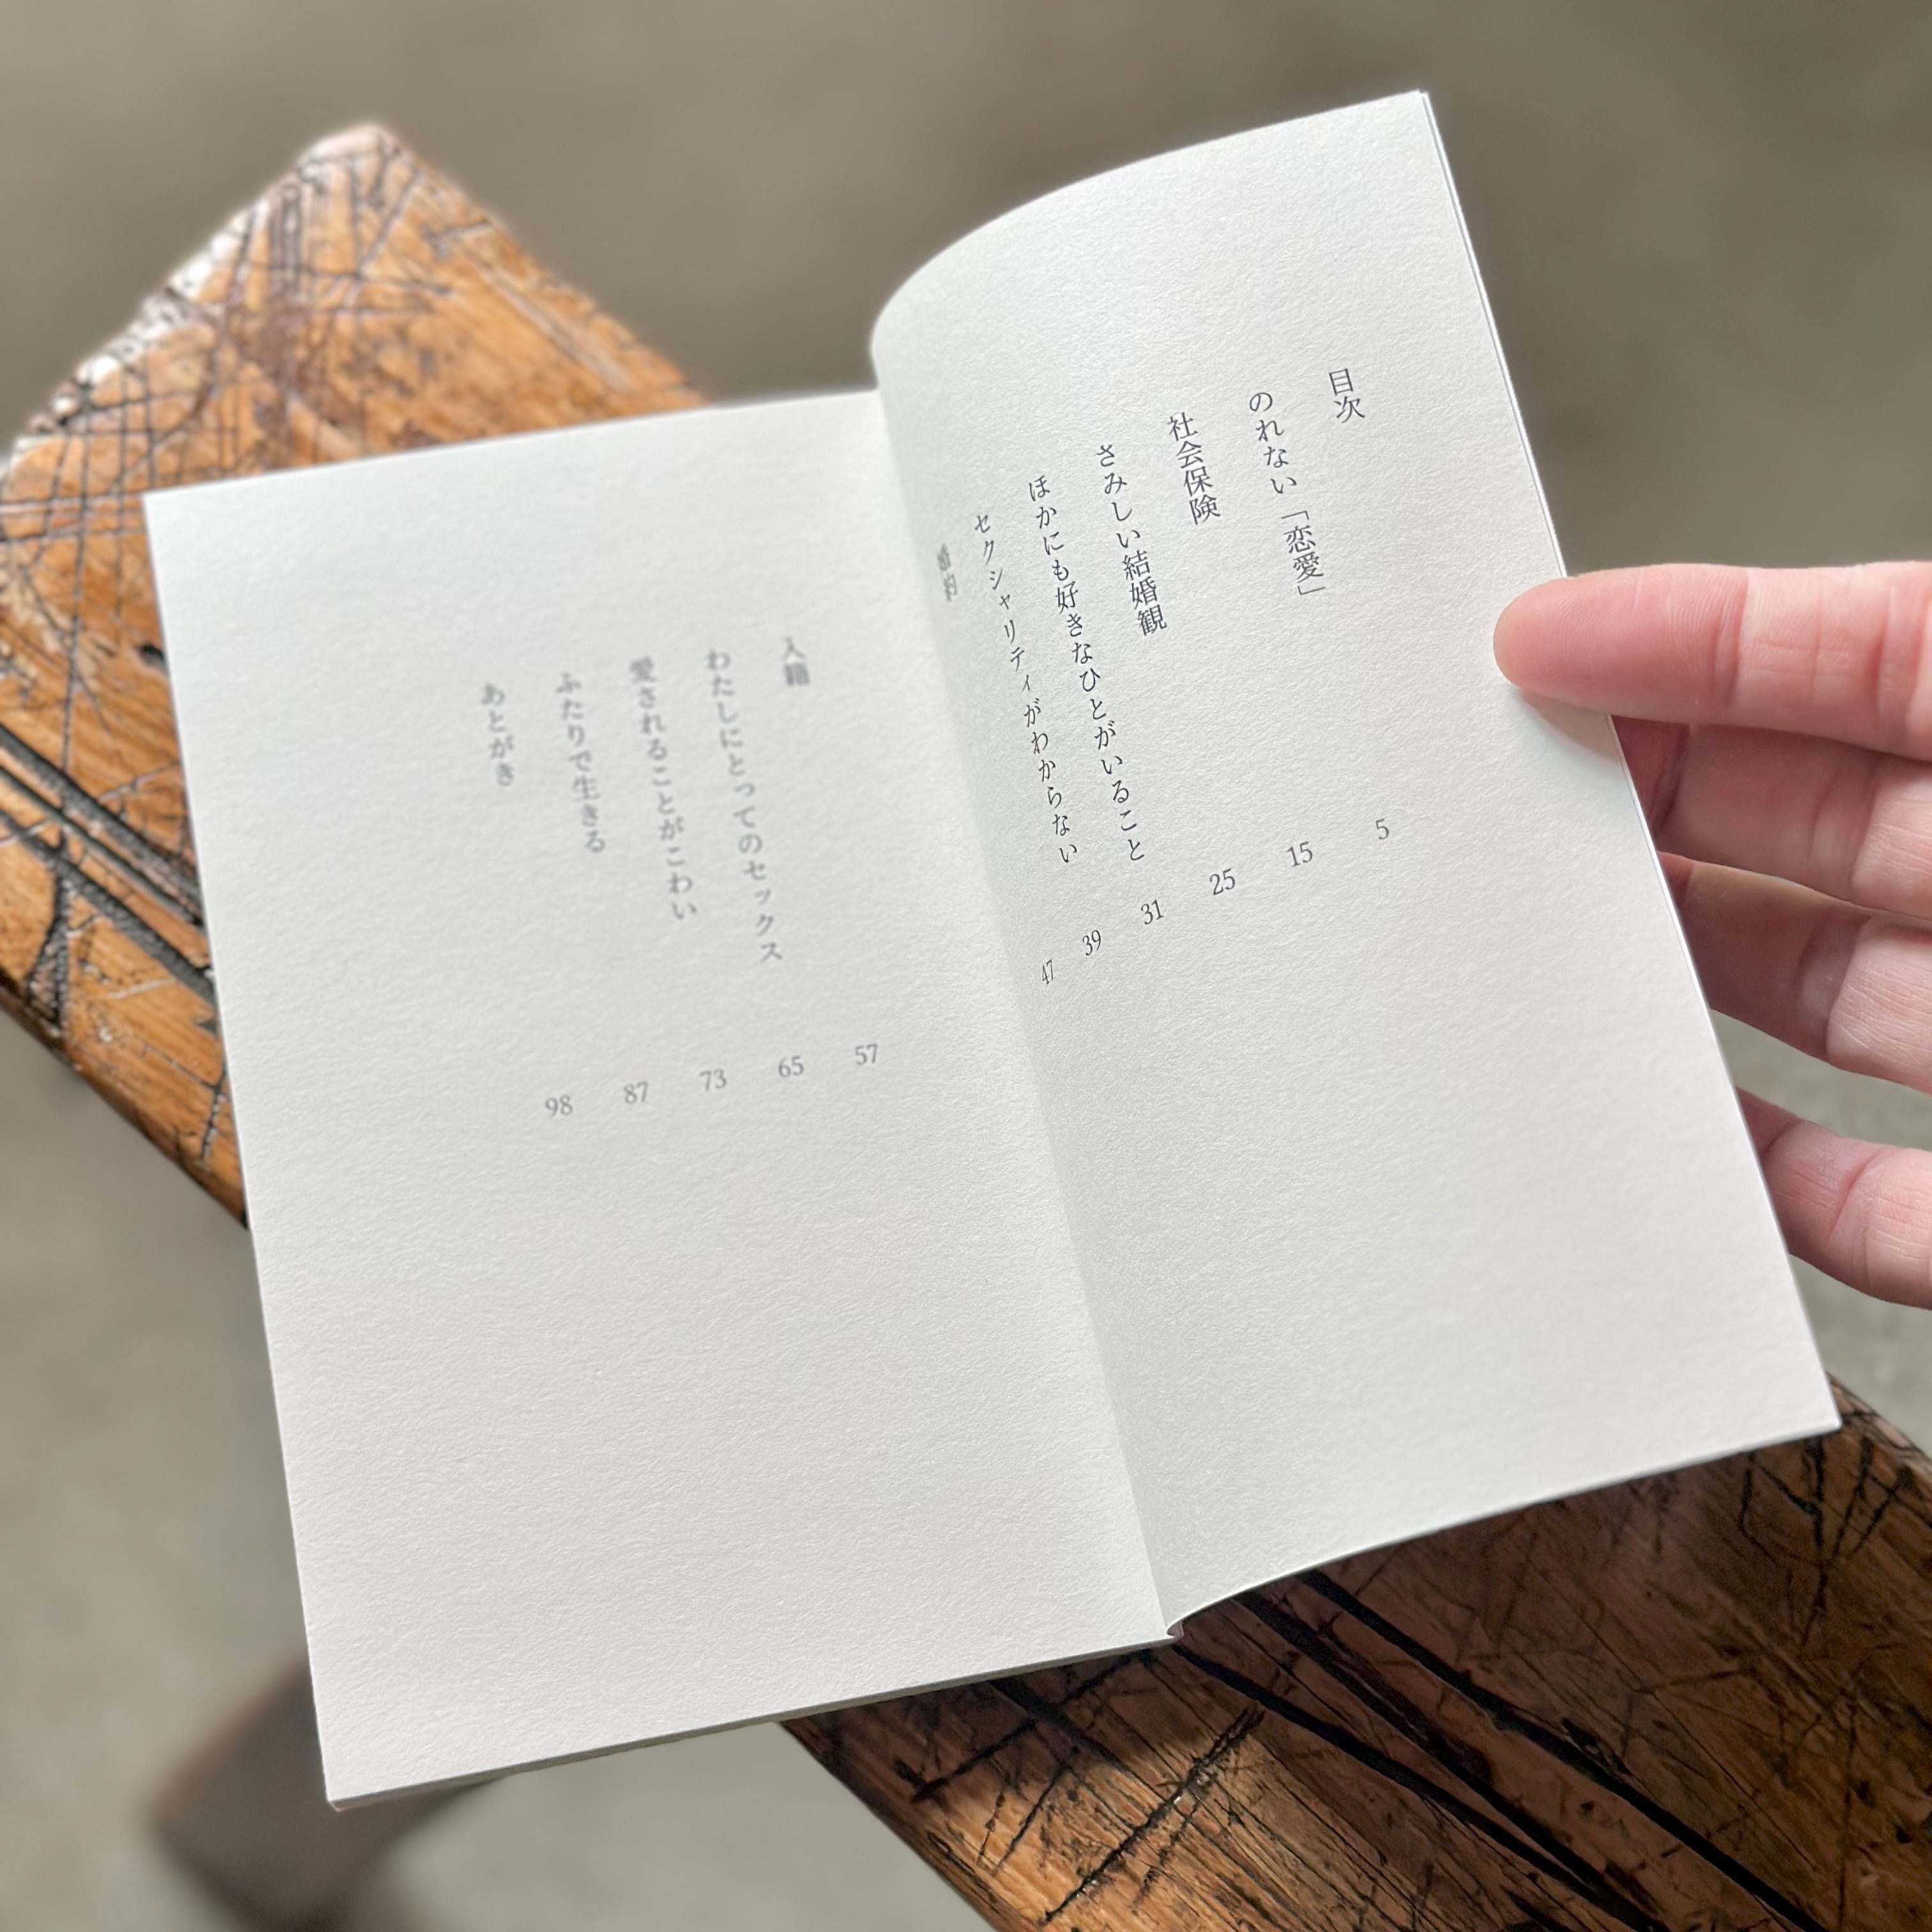 目次
のれない「恋愛」 5
社会保険 15
さみしい結婚観 25
ほかにも好きなひとがいること 31
セクシャリティがわからない 39
婚約 47
入籍 57
わたしにとってのセックス 65
愛されることがこわい 73
ふたりで生きる 87
あとがき 98